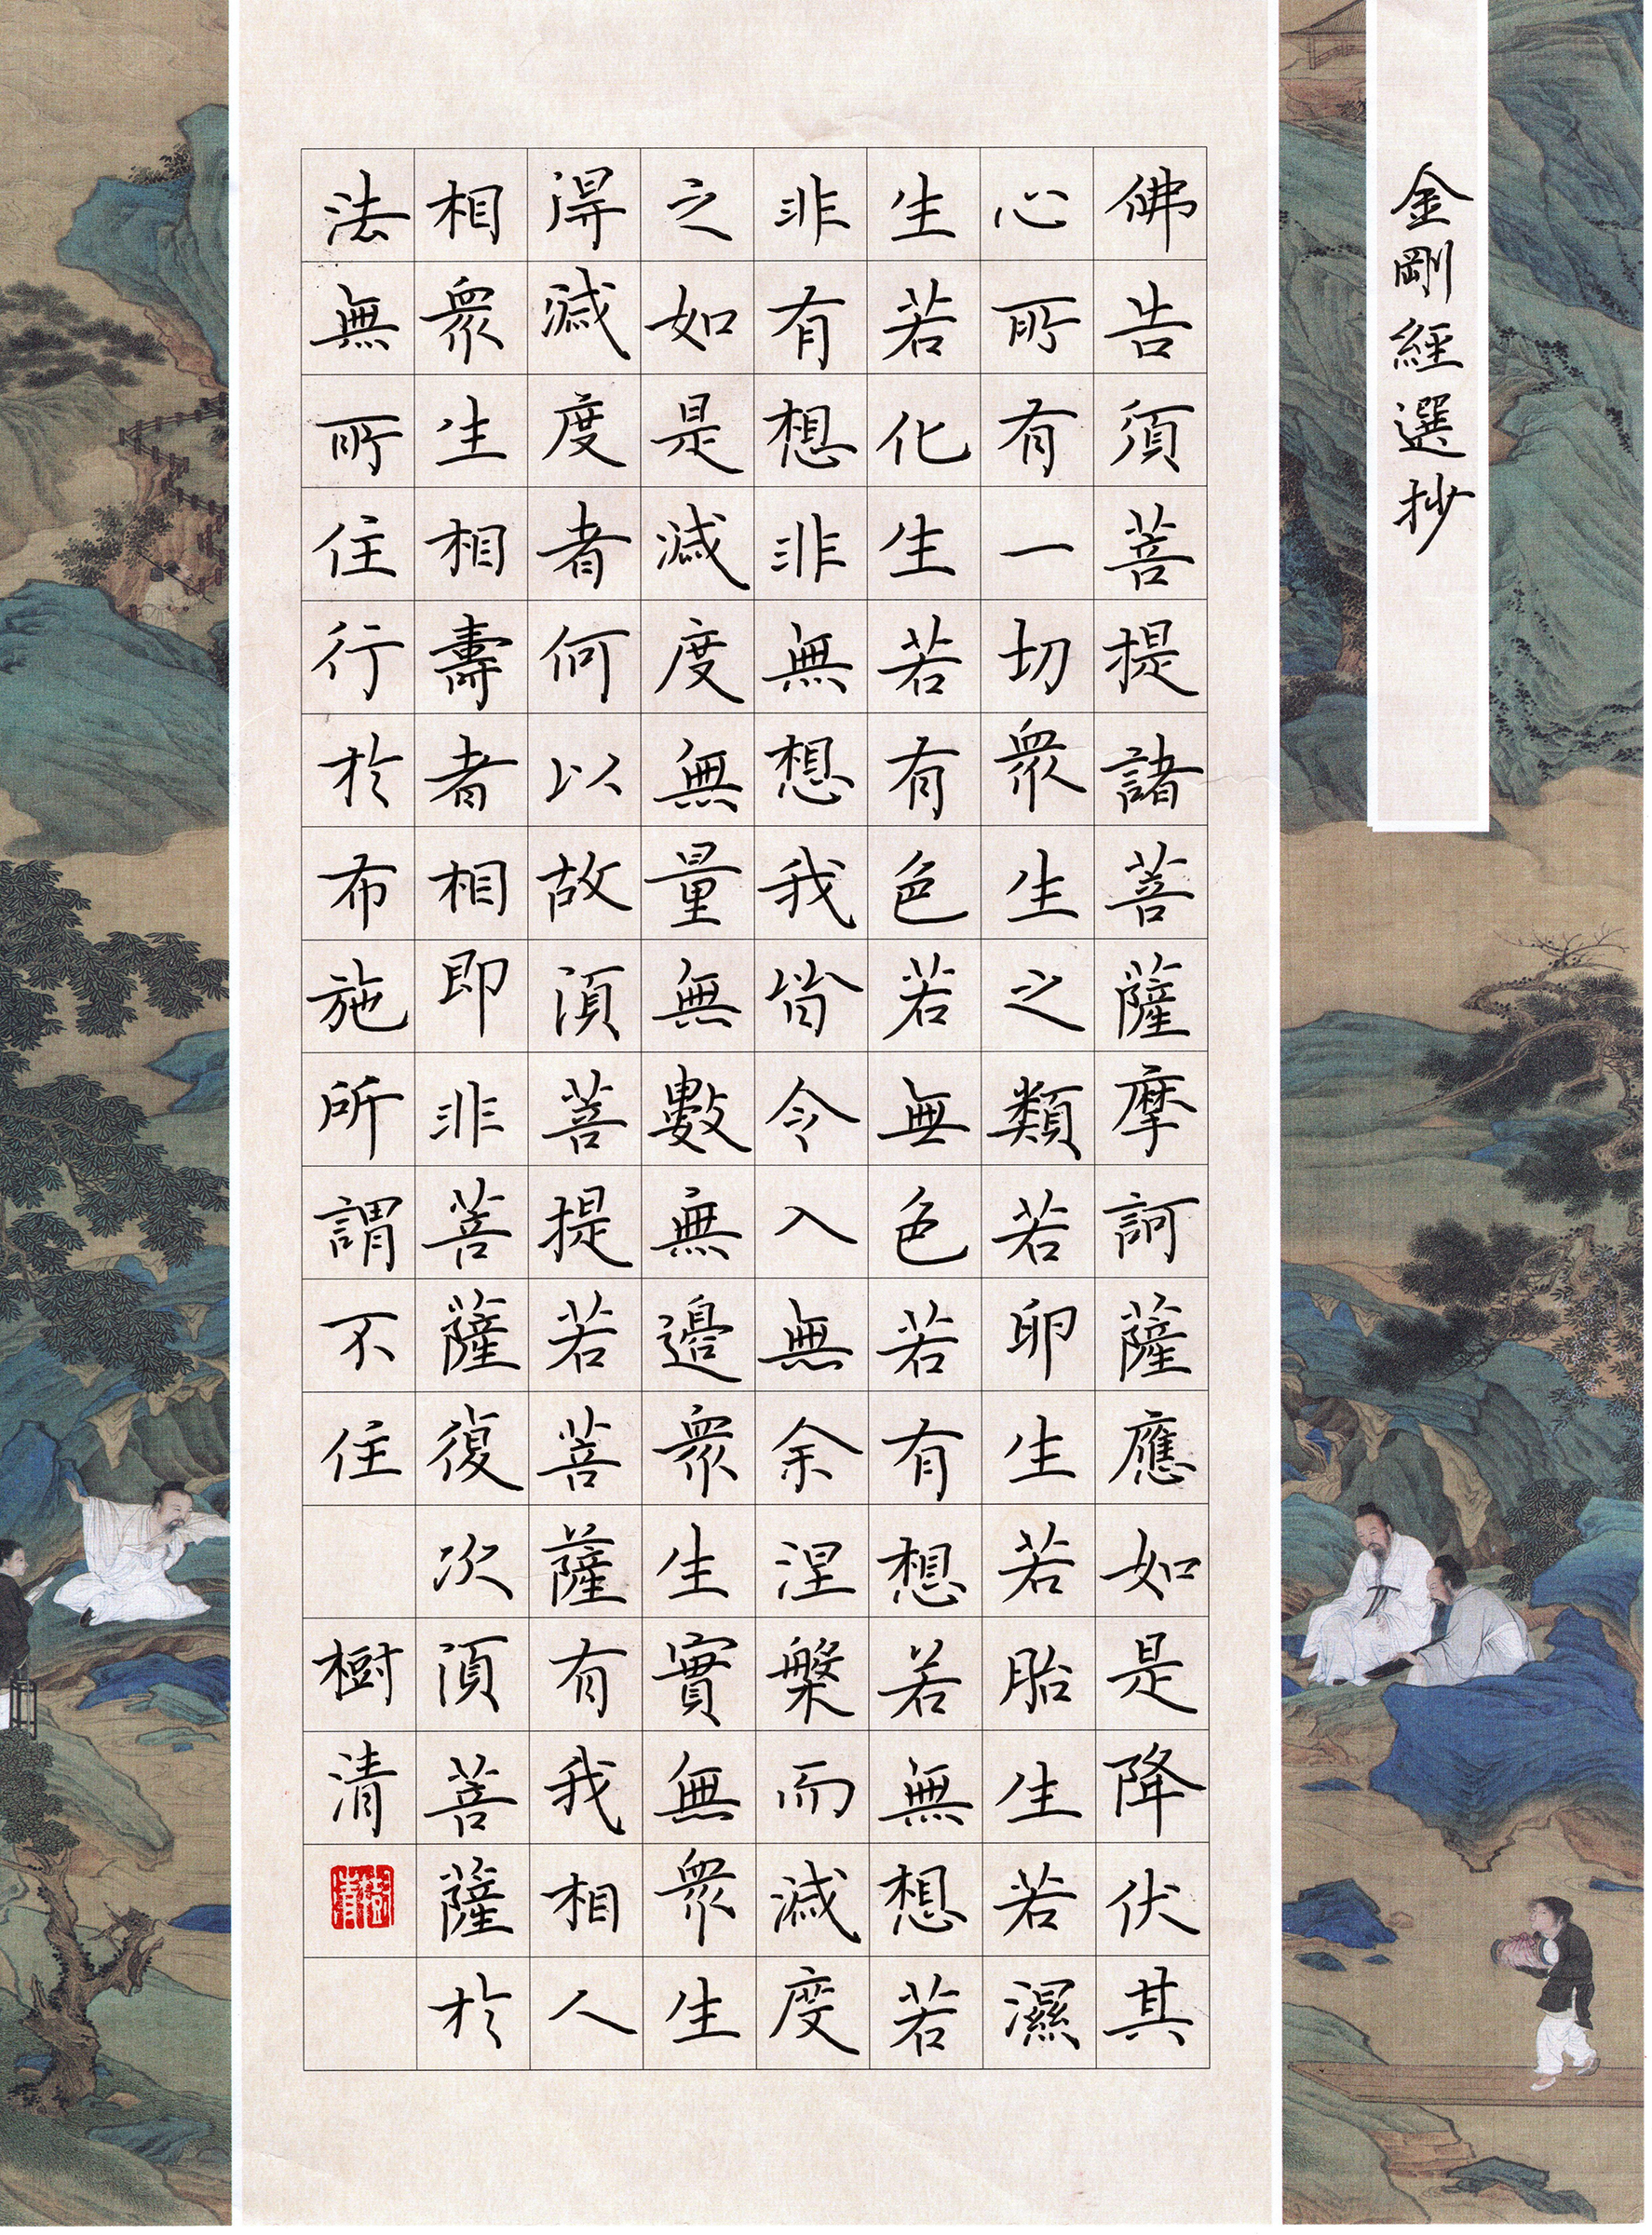 金剛經選抄
佛告須菩提諸菩薩摩訶薩應如是降伏其
心所有一切衆生之類若卵生若胎生若濕
生若化生若有色若無色若有想若無想若
非有想非無想我皆令入無余涅槃而滅度
之如是滅度無量無數無邊衆生實無衆生
得滅度者何以故須菩提若菩薩有我相人
相衆生相壽者相即非菩薩復次須菩薩於
法無所住行於布施所謂不住
樹清
樹清